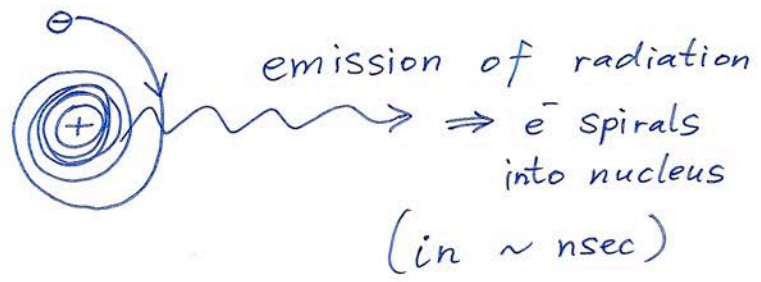 ⊖
+
emission of radiation
⇒ e⁻ spirals
into nucleus
(in ~ nsec)